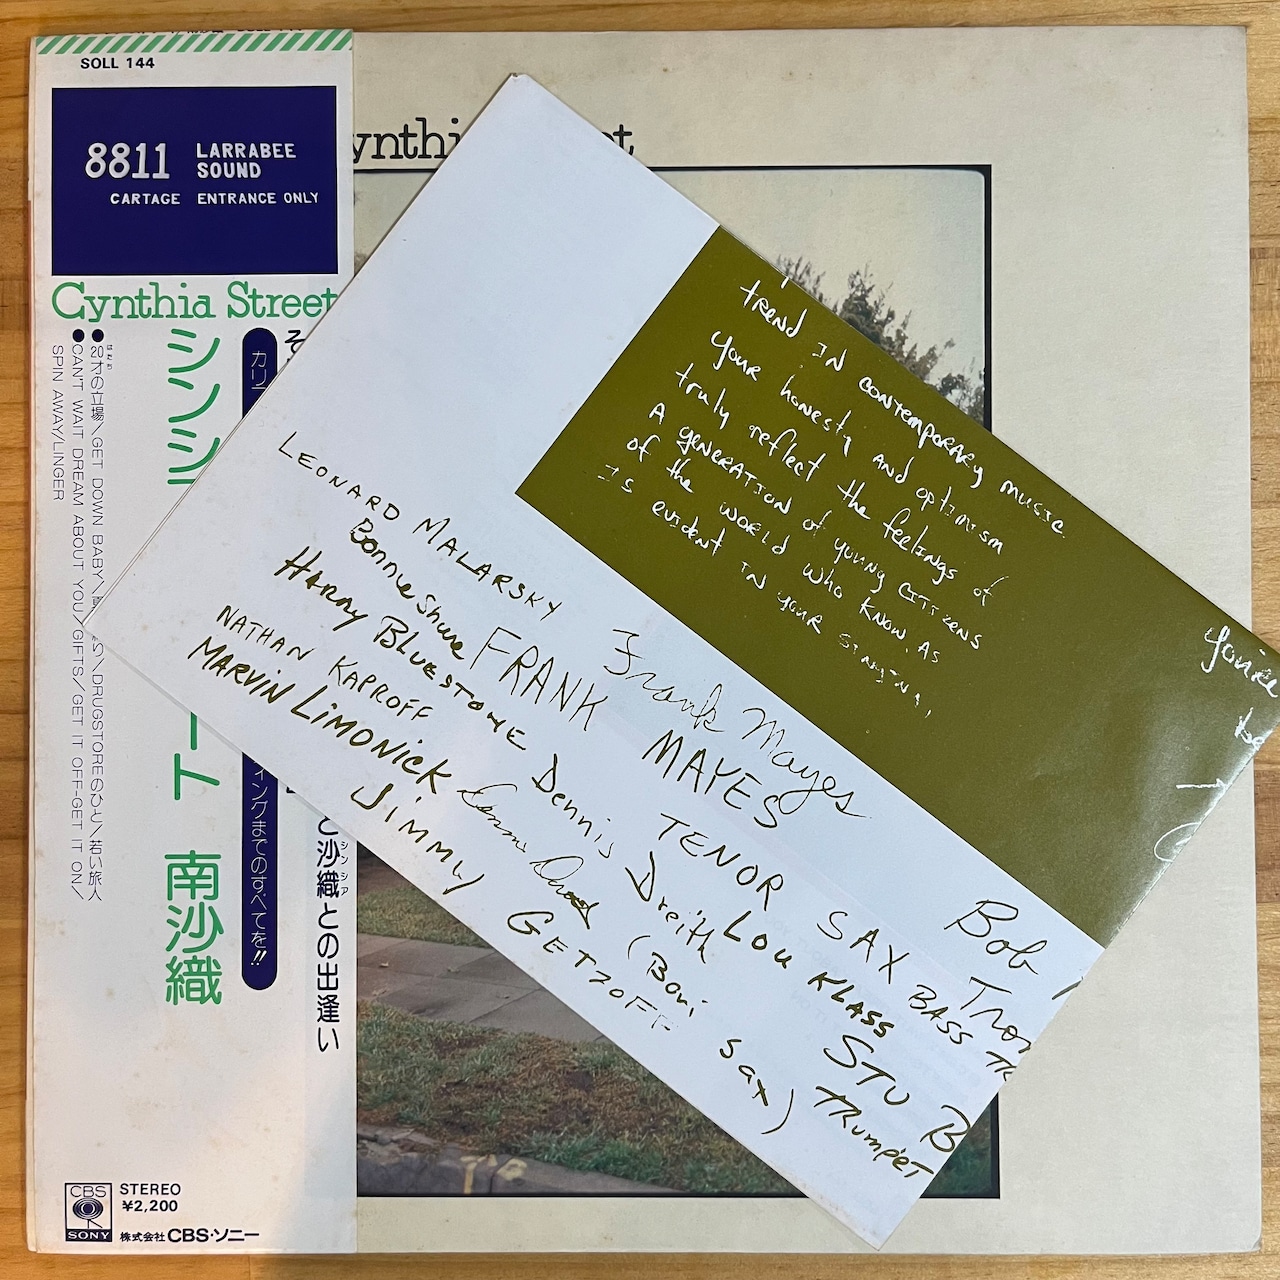 SOLL 144
8811 LARRABEE SOUND
CARTAGE ENTRANCE ONLY
Cynthia Street
シンシ
ート 南沙織
までのすべてを!!
沙織との出逢い
シンシア
GET DOWN BABY
DRUGSTOREの
若い旅人
●CAN'T WAIT DREAM ABOUT YOU/GIFTS/GET IT OFF-GET IT ON/
SPIN AWAY/LINGER
CBS
SONY
STEREO
¥2,200
株式会社CBS・ソニー
trend in contemporary music.
Your honesty and optimism
truly reflect the feelings of
A generation of young citizens
of the world who know. As
Is evident in your singing,
You're
be
LEONARD MALARSKY
Bonnie Shure
Harry BLUESTONE
NATHAN KAPROFF
MARVIN LIMONICK
Jimmy GETZOFF
Frank Mayes
FRANK MAYES TENOR SAX
Dennis Dreith
(Bari Sax)
Lou KLASS
Bob
BASS
STU B
TRUMPET